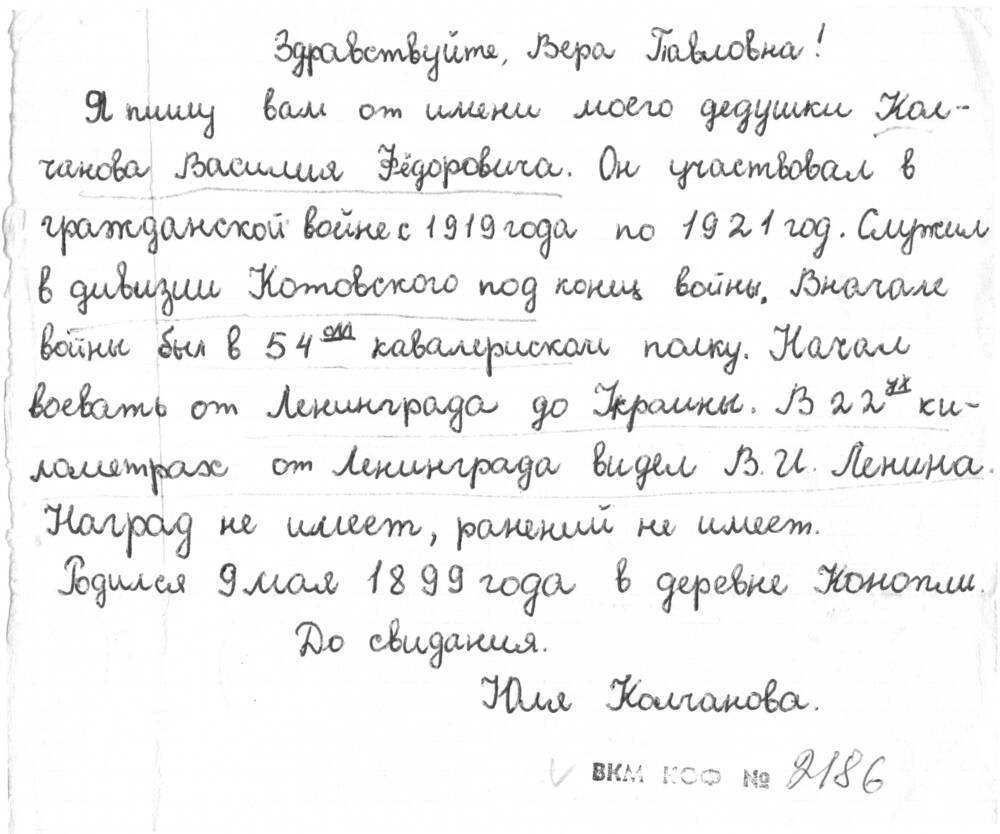 Здравствуйте, Вера Павловна!
Я пишу вам от имени моего дедушки Кол-
чанова Василия Фёдоровича. Он участвовал в
гражданской войне с 1919 года по 1921 год. Служил
в дивизии Котовского под конец войны. Вначале
войны был в 54ом кавалериском полку. Начал
воевать от Ленинграда до Украины. В 22ух ки-
лометрах от Ленинграда видел В.И. Ленина.
Наград не имеет, ранений не имеет.
Родился 9 мая 1899 года в деревне Конопли.
До свидания.
Юля Колчанова.
ВКМ КСФ № 2186